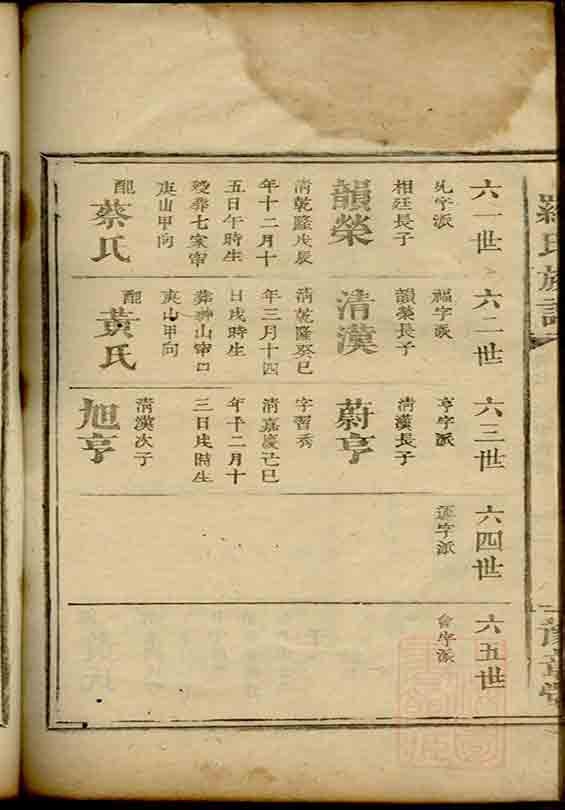 羅氏族譜
六一世
允字派
相廷長子
韻榮
清乾隆戊辰
年十二月十
五日午時生
歿葬七家窜
庚山甲向
配
蔡氏
六二世
福字派
韻榮長子
清漢
清乾隆癸巳
年三月十四
日戌時生
葬神山窜口
庚山甲向
配
黃氏
六三世
亨字派
清漢長子
蔚亨
字習秀
清嘉慶己巳
年十二月十
三日戌時生
清漢次子
旭亨
六四世
字派
六五世
會字派
豫章堂